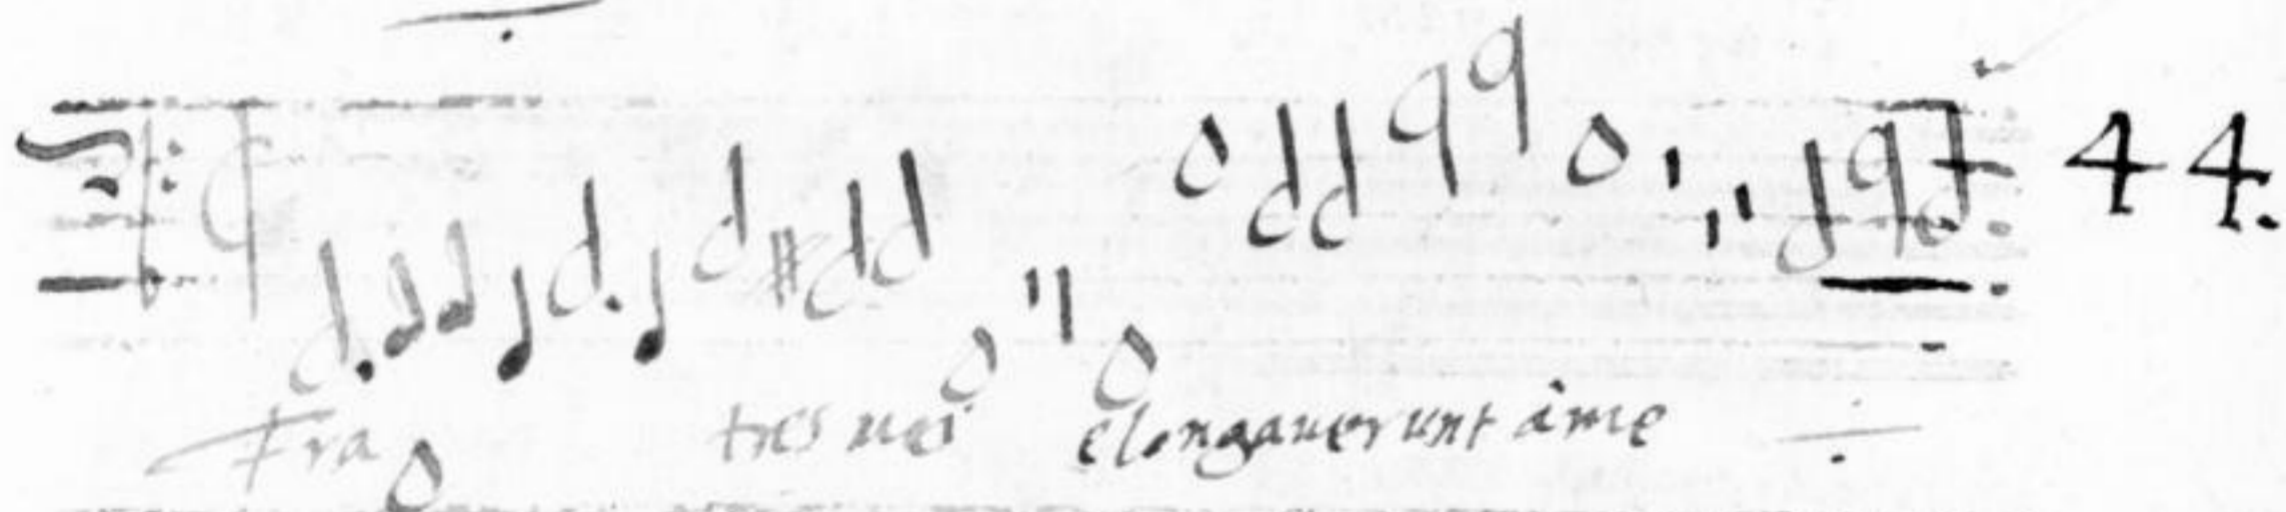 44.
Fra tres mei elongauerunt àme